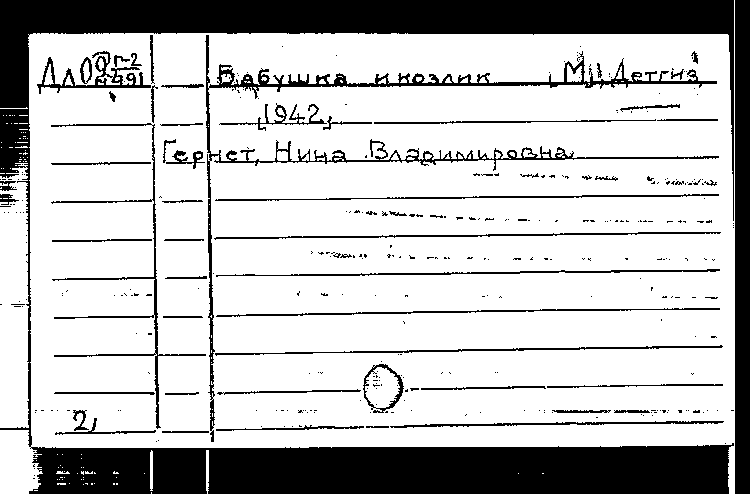 Бабушка и козлик, М., Детгиз,
1942,
Гернет, Нина Владимировна
2,